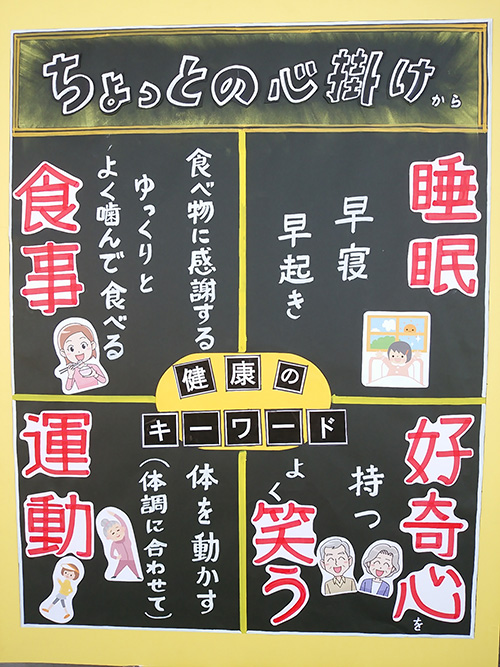 ちょっとの心掛けから
睡眠
早寝
早起き
食べ物に感謝する
ゆっくりと
よく噛んで食べる
食事
健康の
キーワード
好奇心を
持つ
よく笑う
体を動かす
(体調に合わせて)
運動